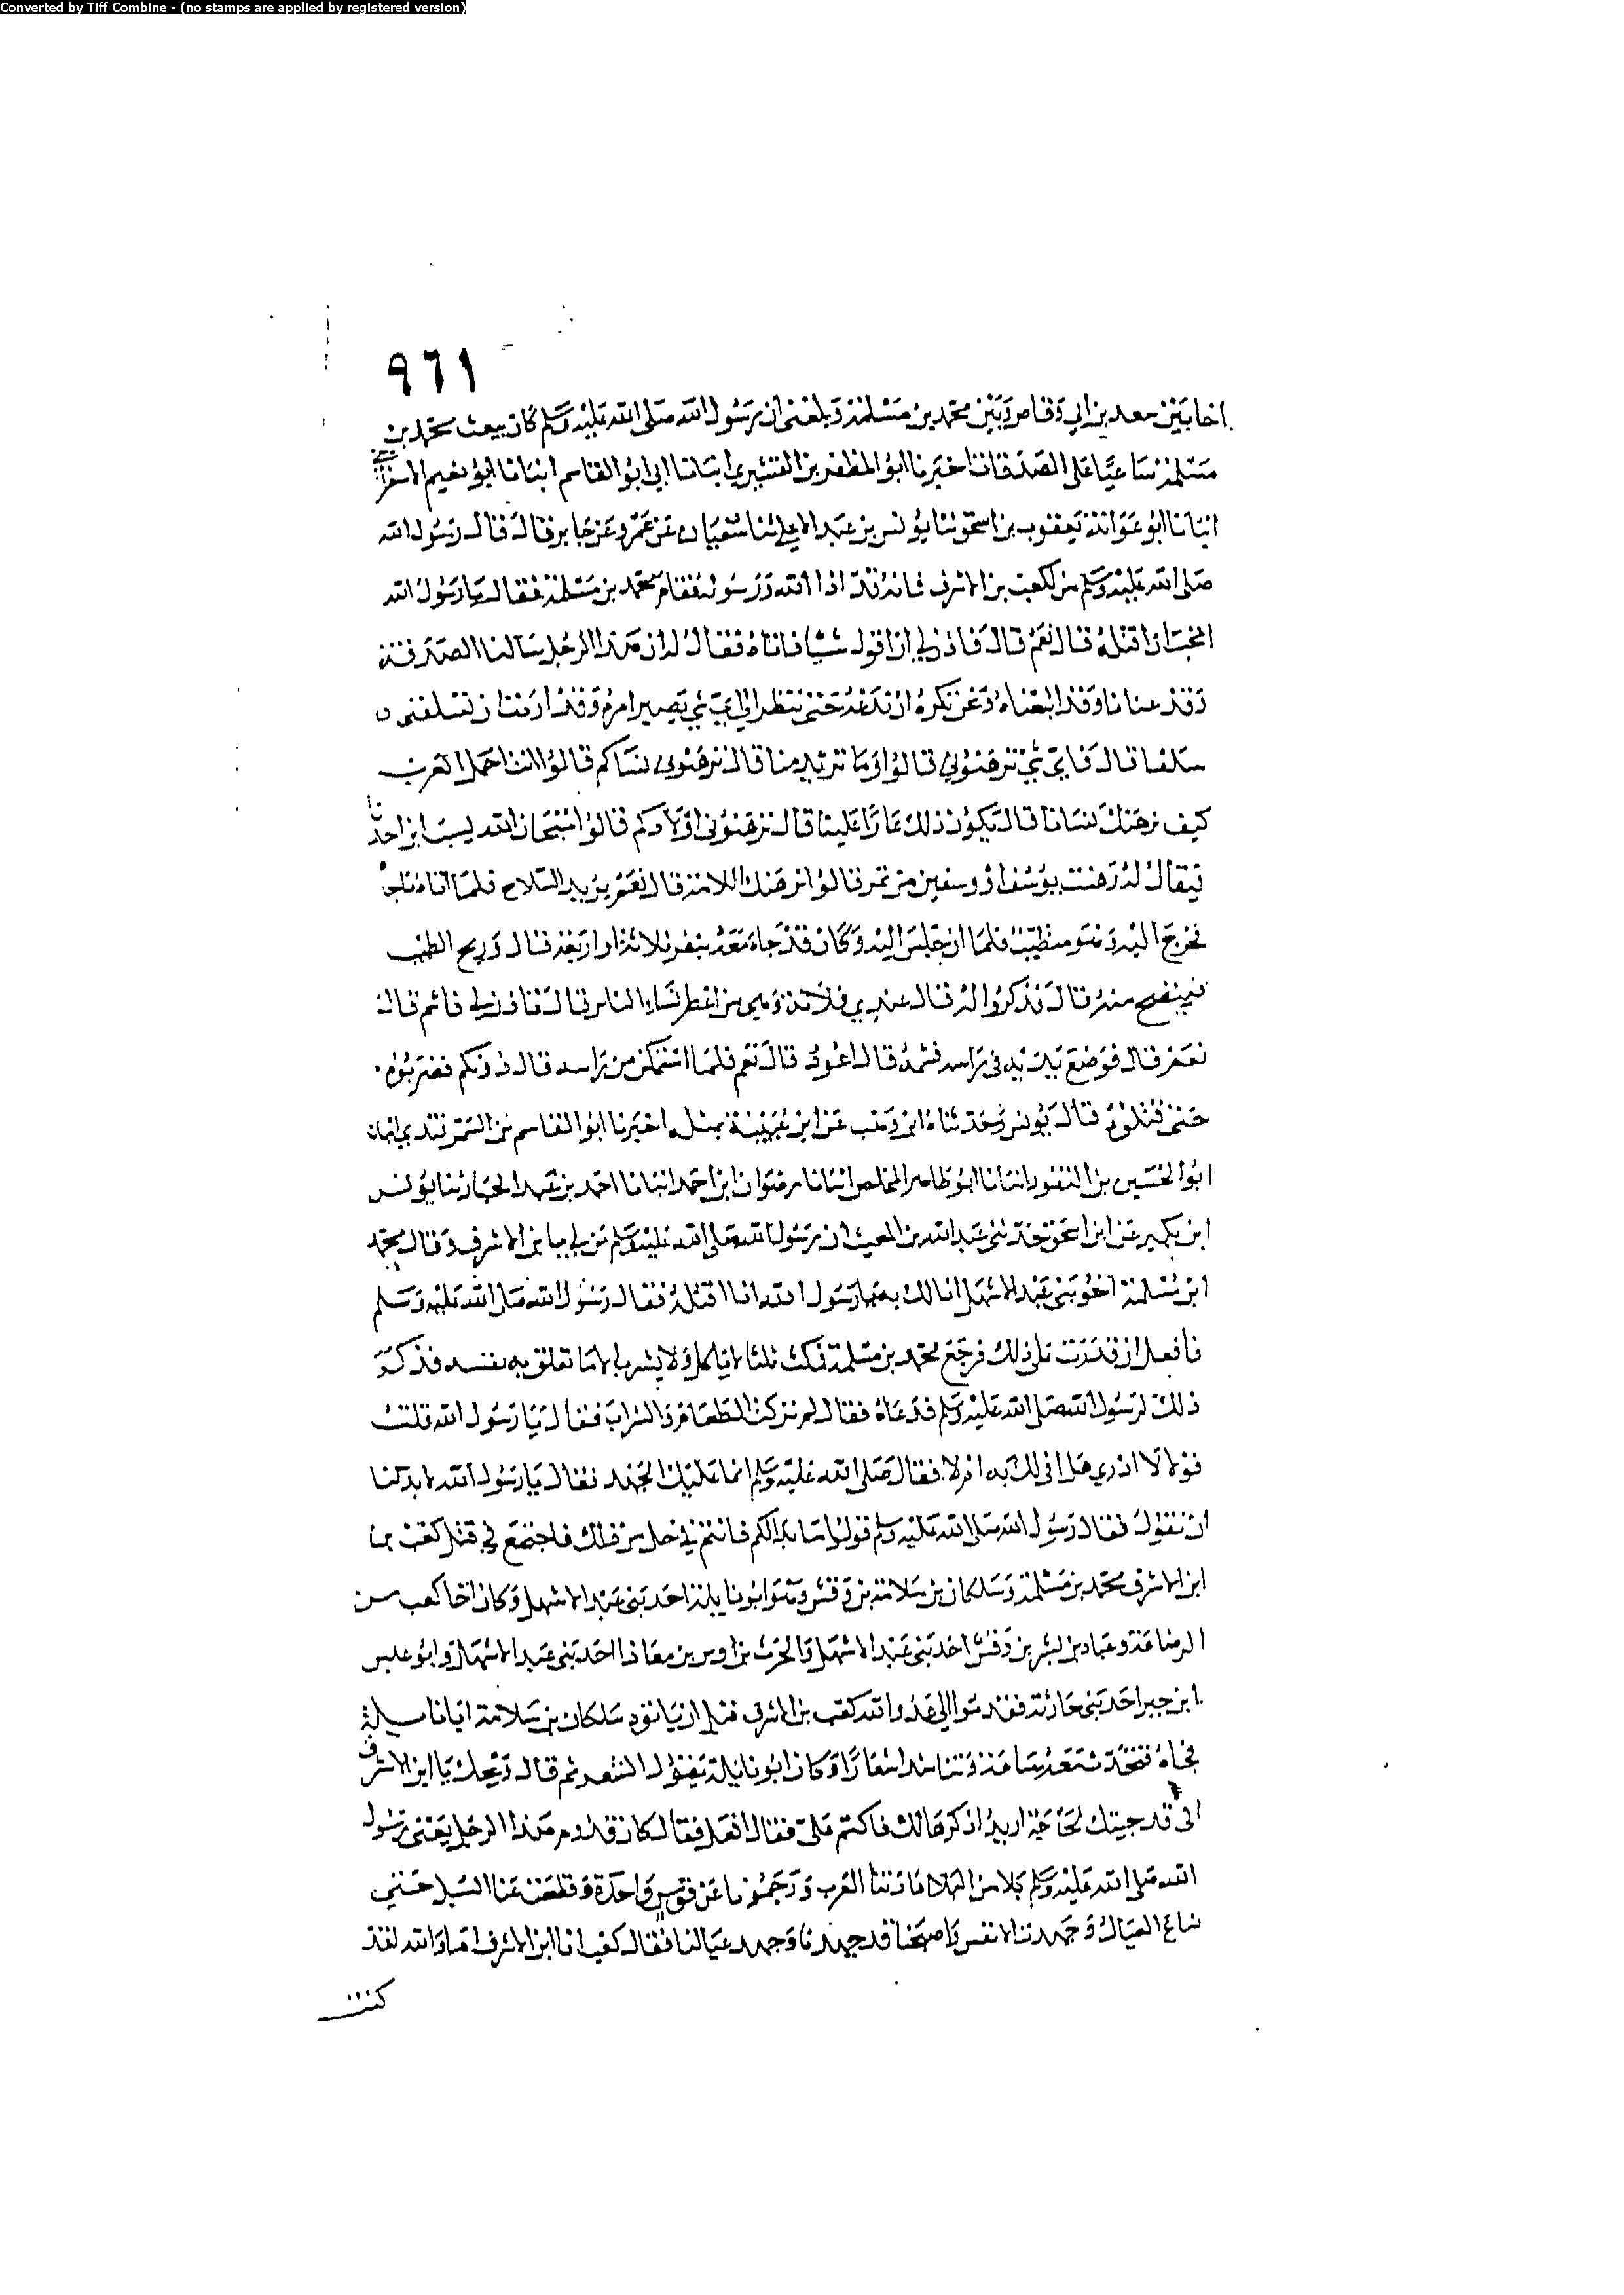 Converted by Tiff Combine - (no stamps are applied by registered version)
٩٦١
اخا بين سعد بن ابي وقاص وبين محمد بن مسلمة وبلغني ان رسول الله صلى الله عليه وسلم كان يبعث محمد بن
مسلمة ساعيا على الصدقات اخبرنا ابو المظفر بن القشيري انبانا ابي ابو القاسم انبانا ابو نعيم الاسفرايني
انبانا ابو عوانة يعقوب بن اسحق ثنا يونس بن عبد الاعلى ثنا سفيان عن عمرو عن جابر قال قال رسول الله
صلى الله عليه وسلم من لكعب بن الاشرف فانه قد اذا الله ورسوله فقام محمد بن مسلمة فقال يا رسول الله
اتحب ان اقتله قال نعم قال فاذن لي ان اقول شيا فاتاه فقال له ان هذا الرجل سالنا الصدقة
وقد عنانا وقد اتبعناه ونحن نكره ان ندعه حتى ننظر الى اي شي يصير امره وقد اردت ان تسلفني
سلفا قال فاي شي ترهنوني قالوا وما تريد منا قال ترهنوني نساكم قالوا انت اجمل العرب
كيف نرهنك نسانا قال يكون ذلك عارا علينا قال ترهنوني اولادكم قالوا سبحان الله يسب ابن احدنا
فيقال له رهنت بوسق او وسقين من تمر قالوا نرهنك اللامة قال نعم يريد السلاح فلما اتاه ناجاه
فخرج اليه وهو متطيب فلما ان جلس اليه وكان قد جاء معه بنفر ثلاثة او اربعة قال وريح الطيب
ينفح منه قال فذكروا له قال عندي فلانة وهي من اعطر نساء الناس قال فاذن لي فاشم قال
نعم قال فوضع يديه في راسه فشمه قال اعود قال نعم فلما استمكن من راسه قال دونكم فضربوه
حتى قتلوه قال يونس وحدثناه ابن وهب عن ابن عيينة بمثله اخبرنا ابو القاسم بن السمرقندي انبانا
ابو الحسين بن النقور انبانا ابو طاهر المخلص انبانا رضوان بن احمد انبانا احمد بن عبد الجبار ثنا يونس
ابن بكير عن ابن اسحق حدثني عبد الله بن المغيث ان رسول الله صلى الله عليه وسلم من لي بابن الاشرف وقال محمد
ابن مسلمة اخو بني عبد الاشهل انا لك به يا رسول الله انا اقتله فقال رسول الله صلى الله عليه وسلم
فافعل ان قدرت على ذلك فرجع محمد بن مسلمة فمكث ثلثا لا ياكل ولا يشرب الا ما تعلق به نفسه فذكر
ذلك لرسول الله صلى الله عليه وسلم فدعاه فقال لم تركت الطعام والشراب فقال يا رسول الله قلت
قولا لا ادري هل افي لك به ام لا فقال صلى الله عليه وسلم انما عليك الجهد فقال يا رسول الله لا بد لنا
ان نقول فقال رسول الله صلى الله عليه وسلم قولوا ما بدا لكم فانتم في حل من ذلك فاجتمع في قتل كعب
ابن الاشرف محمد بن مسلمة وسلكان بن سلامة بن وقش وهو ابو نايلة احد بني عبد الاشهل وكان اخا كعب من
الرضاعة وعباد بن بشر بن وقش احد بني عبد الاشهل والحرث بن اوس بن معاذ احد بني عبد الاشهل وابو عبس
ابن جبر احد بني حارثة فقدموا الى عدو الله كعب بن الاشرف قبل ان ياتوه سلكان بن سلامة ابا نايلة
فجاه فتحدث معه ساعة وتناشدا اشعارا وكان ابو نايلة يقول الشعر ثم قال ويحك يا ابن الاشرف
اني قد جيتك لحاجة اريد اذكرها لك فاكتم علي فقال افعل فقال كان قدوم هذا الرجل يعني رسول
الله صلى الله عليه وسلم بلاء من البلاء عادتنا العرب ورجمونا عن قوس واحدة وقطعت عنا السبل حتى
ضاع العيال وجهدت الانفس واصبحنا قد جهدنا وجهد عيالنا فقال كعب انا ابن الاشرف اما والله لقد
كنت